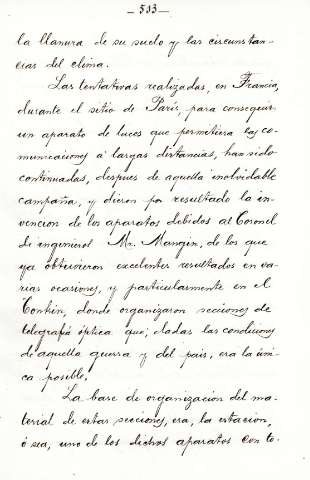 - 533 -
la llanura de su suelo y las circunstan-
cias del clima.
Las tentativas realizadas, en Francia,
durante el sitio de París, para conseguir
un aparato de luces que permitiera las co-
municaciones á largas distancias, han sido
continuadas, despues de aquella inolvidable
campaña, y dieron por resultado la in-
vencion de los aparatos debidos al Coronel
de ingenieros Mr. Mangin, de los que
ya obtuvieron excelentes resultados en va-
rias ocasiones, y particularmente en el
Tonkin, donde organizaron secciones de
telegrafía óptica que, dadas las condiciones
de aquella guerra y del pais, era la úni-
ca posible.
La base de organización del ma-
terial de estas secciones, era, la estacion,
ó sea, uno de los dichos aparatos con to-